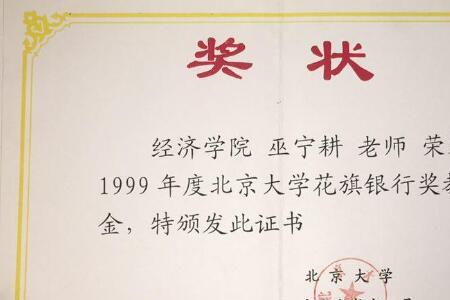 奖状
经济学院 巫宁耕 老师 荣
1999 年度北京大学花旗银行奖教
金，特颁发此证书
北京大学